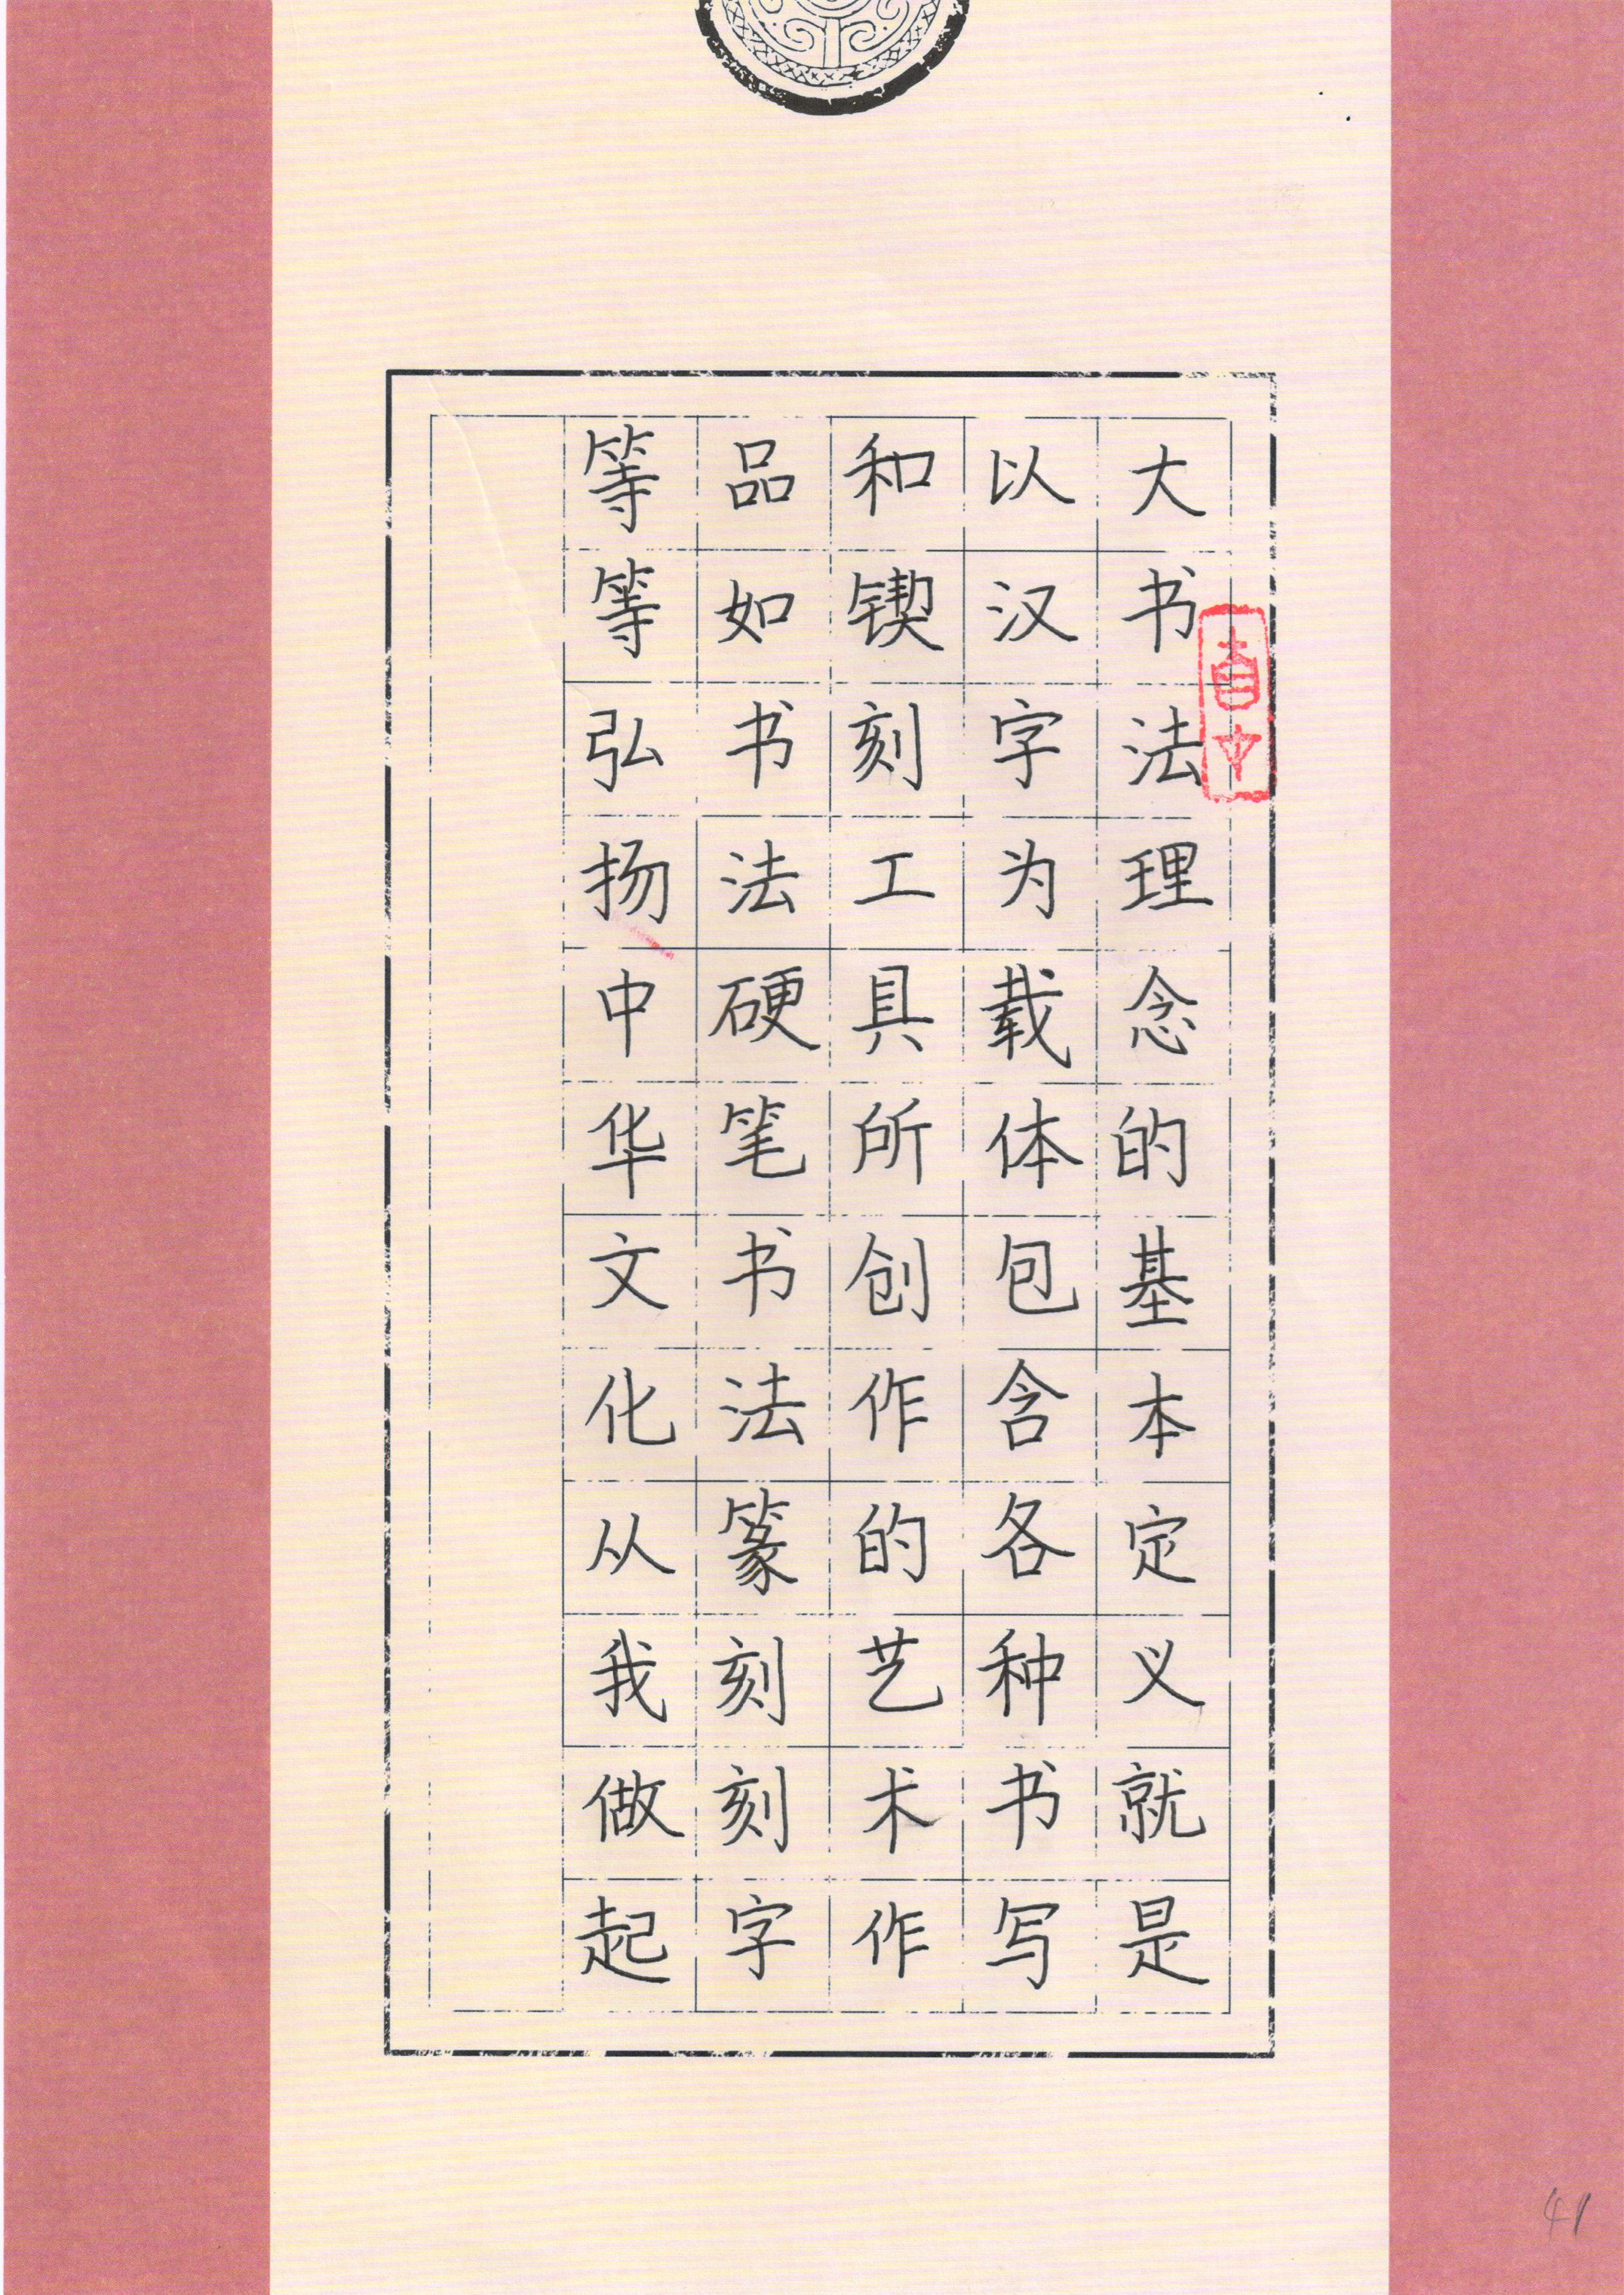 大书法理念的基本定义就是
以汉字为载体包含各种书写
和锲刻工具所创作的艺术作
品如书法硬笔书法篆刻刻字
等等弘扬中华文化从我做起
41